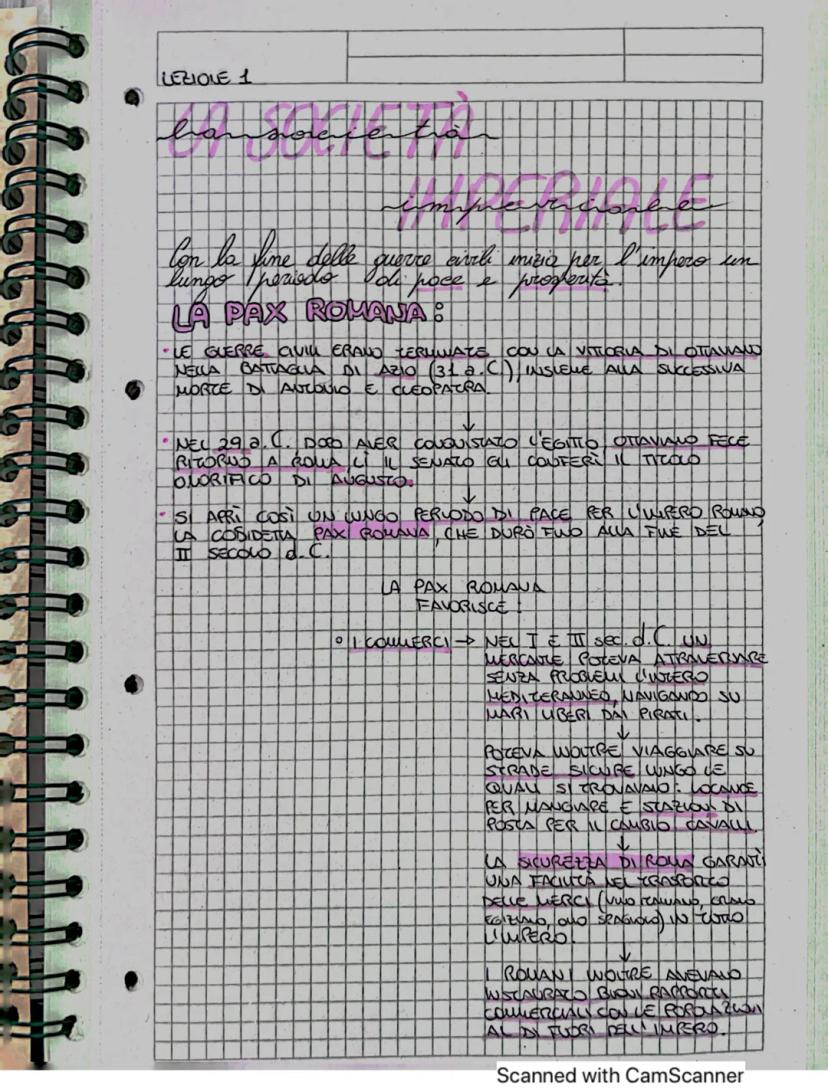 LEZIONE 1
LA SOCIETÀ
la società
IMPERIALE
imperiale
Con la fine delle guerre civili inizia per l'impero un
lungo periodo di pace e prosperità.
LA PAX ROMANA:
• LE GUERRE CIVILI ERANO TERMINATE CON LA VITTORIA DI OTTAVIANO
NELLA BATTAGLIA DI AZIO (31 a.C), INSIEME ALLA SUCCESSIVA
MORTE DI ANTONIO E CLEOPATRA.
↓
• NEL 29 a.C. DOPO AVER CONQUISTATO L'EGITTO OTTAVIANO FECE
RITORNO A ROMA LÌ IL SENATO GLI CONFERÌ IL TITOLO
ONORIFICO DI AUGUSTO.
↓
• SI APRÌ COSÌ UN LUNGO PERIODO DI PACE PER L'IMPERO ROMANO,
LA COSIDETTA PAX ROMANA, CHE DURÒ FINO ALLA FINE DEL
II SECOLO d.C.
LA PAX ROMANA
FAVORISCE:
° I COMMERCI → NEL I E II sec. d.C. UN
MERCANTE POTEVA ATTRAVERSARE
SENZA PROBLEMI L'INTERO
MEDITERANNEO, NAVIGANDO SU
MARI LIBERI DAI PIRATI.
↓
POTEVA INOLTRE VIAGGIARE SU
STRADE SICURE LUNGO LE
QUALI SI TROVAVANO: LOCANDE
PER MANGIARE E STAZIONI DI
POSTA PER IL CAMBIO CAVALLI.
↓
LA SICUREZZA DI ROMA GARANTÌ
UNA FACILITÀ NEL TRASPORTO
DELLE MERCI (VINO ITALIANO, GRANO
EGIZIANO, OLIO SPAGNOLO) IN TUTTO
L'IMPERO.
↓
I ROMANI INOLTRE AVEVANO
INSTAURATO BUONI RAPPORTI
COMMERCIALI CON LE POPOLAZIONI
AL DI FUORI DELL'IMPERO.
Scanned with CamScanner